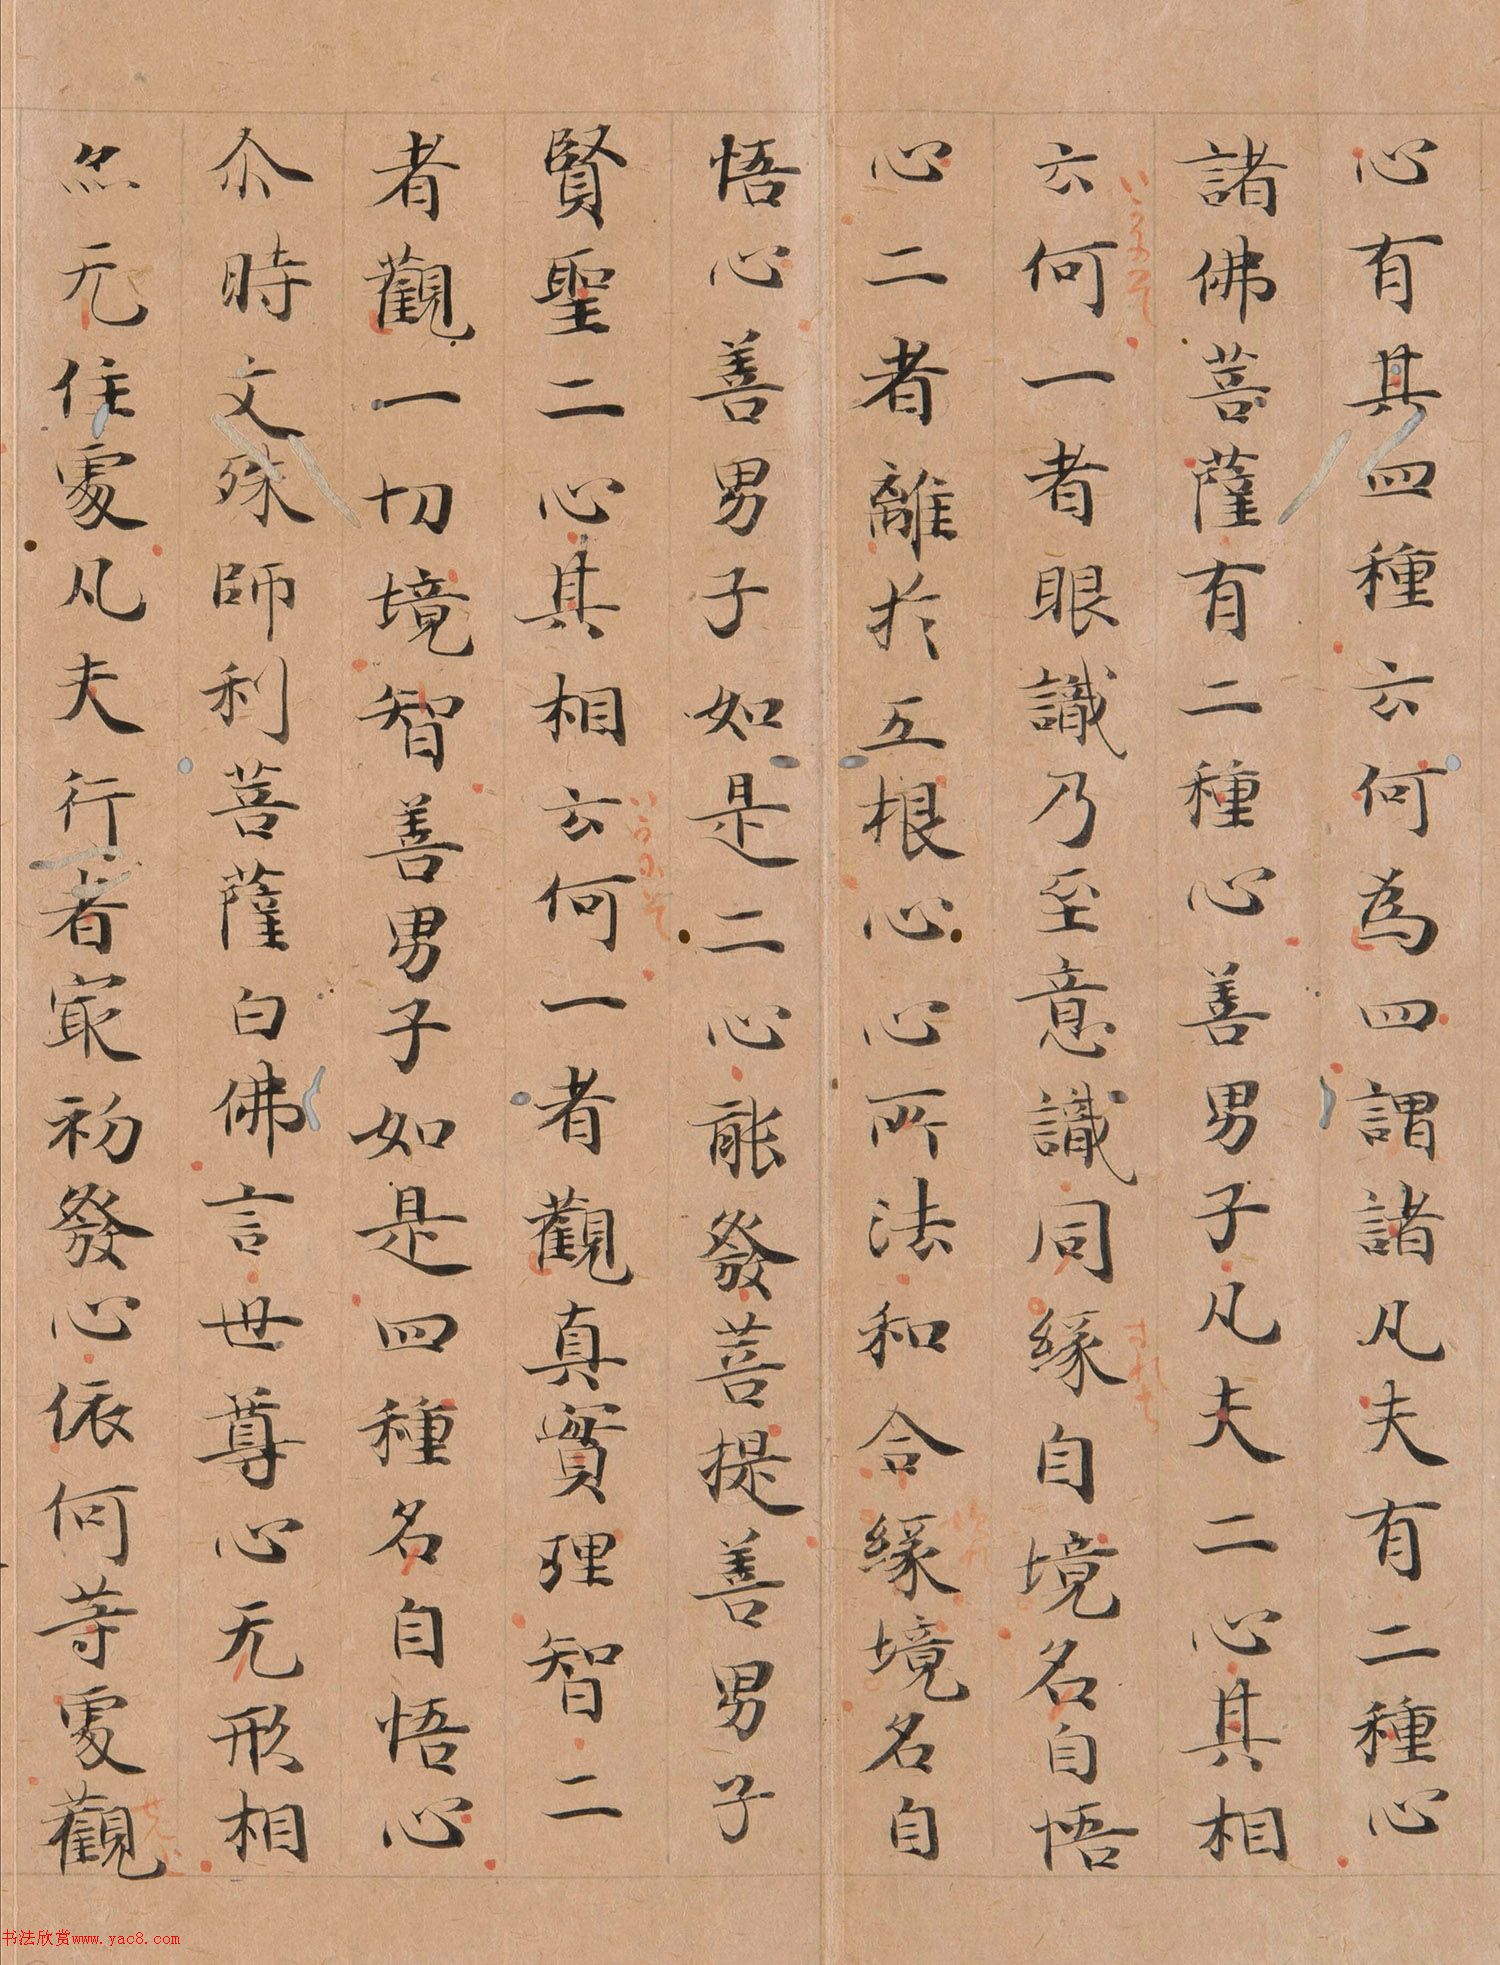 心有其四種云何為四謂諸凡夫有二種心
諸佛菩薩有二種心善男子凡夫二心其相
云何一者眼識乃至意識同緣自境名自悟
心二者離於五根心心所法和合緣境名自
悟心善男子如是二心能發菩提善男子
賢聖二心其相云何一者觀真實理智二
者觀一切境智善男子如是四種名自悟心
尒時文殊師利菩薩白佛言世尊心无形相
亦无住處凡夫行者冣初發心依何等處觀
书法欣赏www.yac8.com